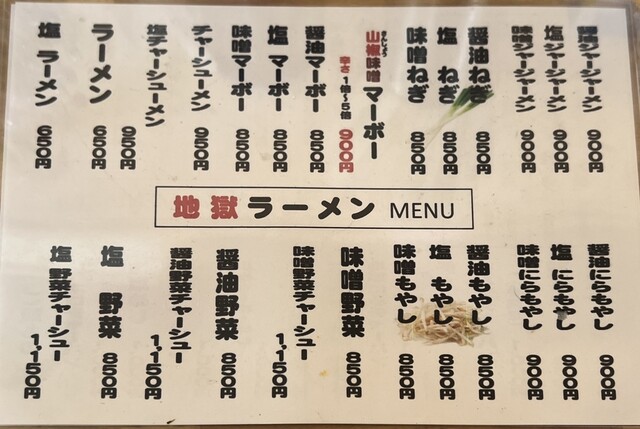 醤油ジャージャーメン 900円
塩ジャージャーメン 900円
味噌ジャージャーメン 900円
醤油ねぎ 850円
塩 ねぎ 850円
味噌ねぎ 850円
さんしょう
山椒味噌 マーボー
辛さ1倍〜5倍 900円
醤油マーボー 850円
塩 マーボー 850円
味噌マーボー 850円
チャーシューメン 950円
塩チャーシューメン 950円
ラーメン 650円
塩 ラーメン 650円
地獄ラーメン MENU
醤油にらもやし 900円
塩 にらもやし 900円
味噌にらもやし 900円
醤油もやし 850円
塩 もやし 850円
味噌もやし 850円
味噌野菜 850円
味噌野菜チャーシュー 1,150円
醤油野菜 850円
醤油野菜チャーシュー 1,150円
塩 野菜 850円
塩 野菜チャーシュー 1,150円